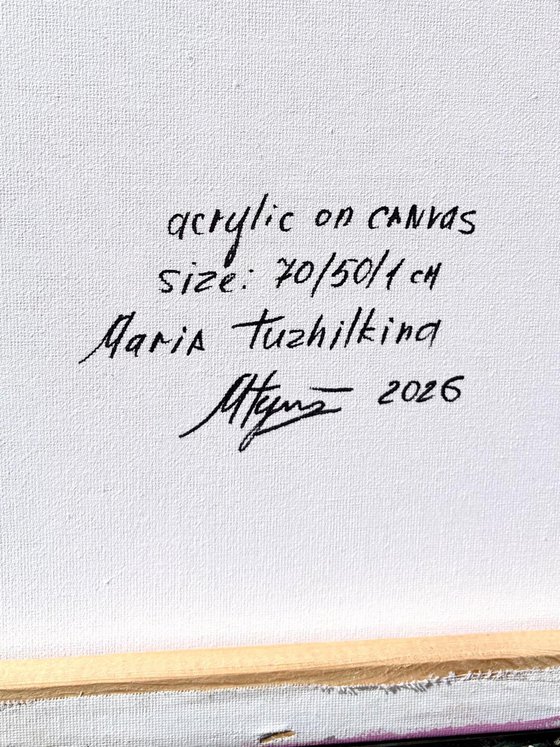 acrylic on canvas
size: 70/50/1 см
Maria Tuzhilkina
2026